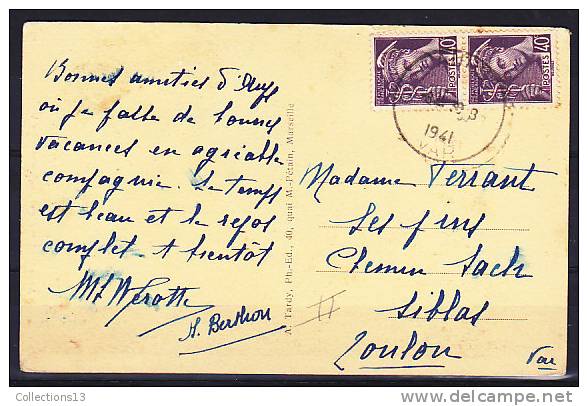 Bonnes amitiés d'Agay
où je passe de bonnes
vacances en agréable
compagnie. Le temps
est beau et le repos
complet A bientôt
A. Berthon
A. Tardy, Ph.-Ed., 40, quai M.-Pétain, Marseille
40
POSTES
40
POSTES
1941
VAR
Madame Ferrant
Les Pins
Chemin
Siblas
Toulon
Var
Collections13
delcampe.net